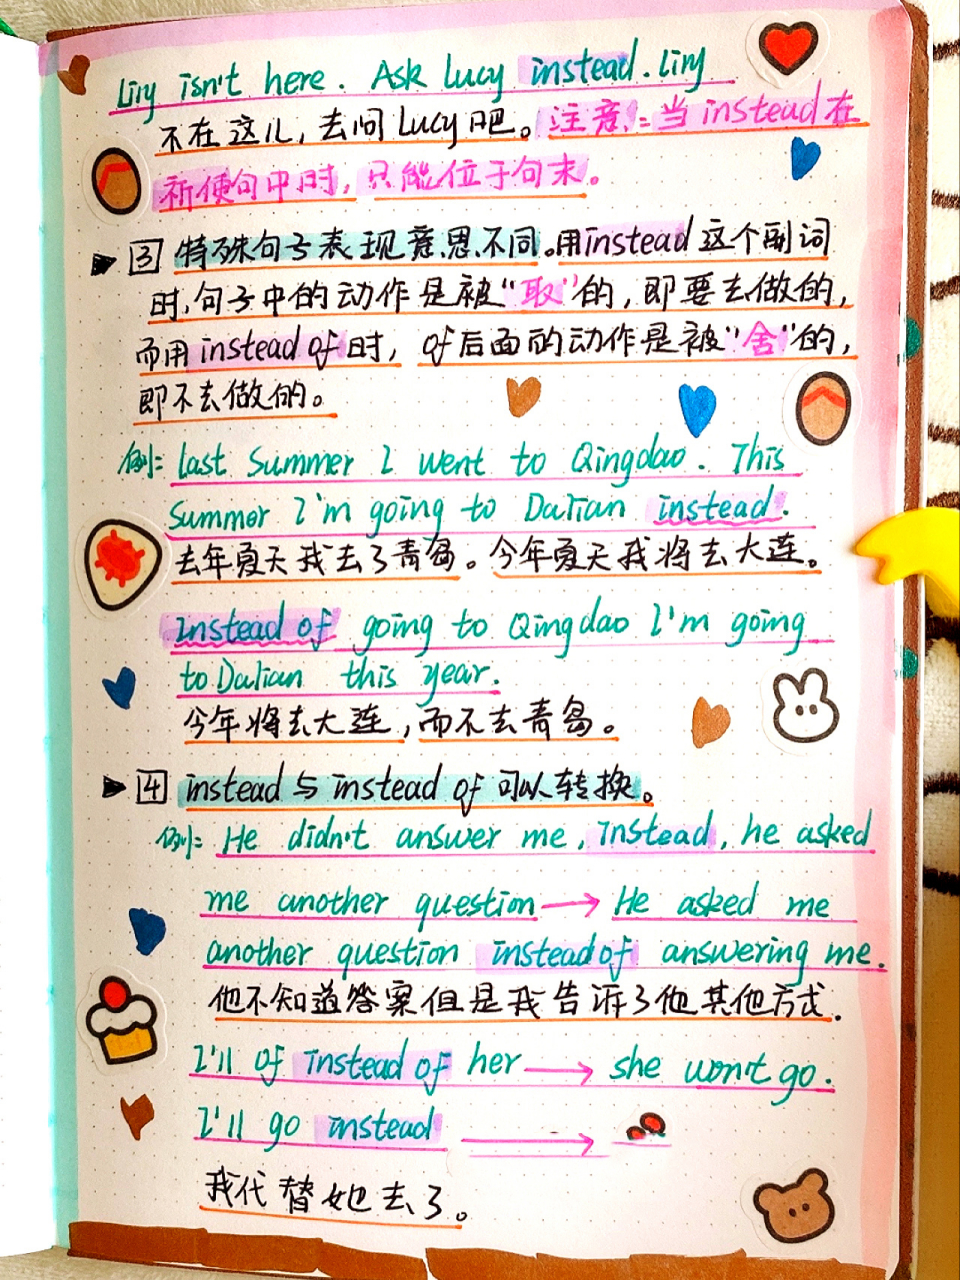 Lily isn't here. Ask Lucy instead. Lily
不在这儿，去问Lucy吧。注意：当instead在
祈使句中时，只能位于句末。
③ 特殊句子表现意思不同。用instead这个副词
时，句子中的动作是被“取”的，即要去做的，
而用instead of时，of后面的动作是被“舍”的，
即不去做的。
例：Last Summer I went to Qingdao. This
Summer I'm going to Dalian instead.
去年夏天我去了青岛。今年夏天我将去大连。
Instead of going to Qingdao I'm going
to Dalian this year.
今年将去大连，而不去青岛。
④ instead与instead of可以转换。
例：He didn't answer me, instead, he asked
me another question → He asked me
another question instead of answering me.
他不知道答案但是我告诉了他其他方式.
I'll of instead of her → she won't go.
I'll go instead →
我代替她去了。